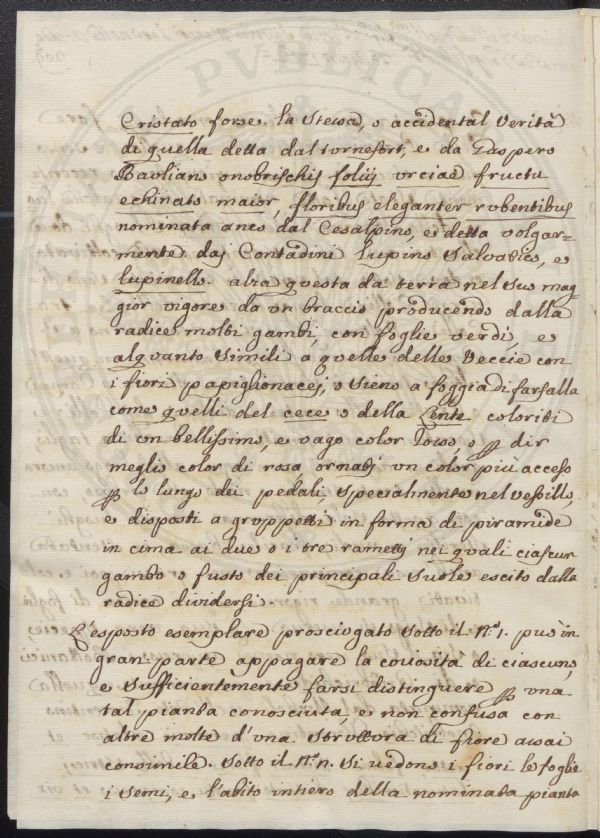 Cristato forse la stessa, o accidental verità
di quella detta dal tornefort, e da Gaspero
Baulians onobrischis folijs viciae fructu
echinato maior, floribus eleganter rubentibus
nominata anco dal Cesalpino, e detta volgar=
mente daj Contadini lupino salvatico, e
lupinello. alza questa da terra nel suo mag
gior vigore da un braccio producendo dalla
radice molti gambi, con foglie verdi, e
alquanto simili a quelle delle veccie con
i fiori papiglionacej, o sieno a foggia di farfalla
come quelli del cece o della Lente coloriti
di un bellissimo, e vago color rosso, o p dir
meglio color di rosa, ornatj un color più acceso
p lo lungo dei pedali specialmente nel vessillo,
e disposti a gruppetti in forma di piramide
in cima ai due o i tre rametti nei quali ciascun
gambo o fusto dei principali suole escito dalla
radice dividersi.
L'esposto esemplare prosciugato sotto il N.º 1. può in
gran parte appagare la curiosita di ciascuno,
e sufficientemente farsi distinguere p una
tal pianta conosciuta, e non confusa con
altre molte d'una struttura di fiore assai
consimile. sotto il N.º n. si vedono i fiori le foglie
i semi, e l'abito intiero della nominata pianta
PVBLICA